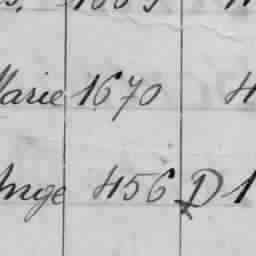 Marie 1670 4
Ange 456 D 1